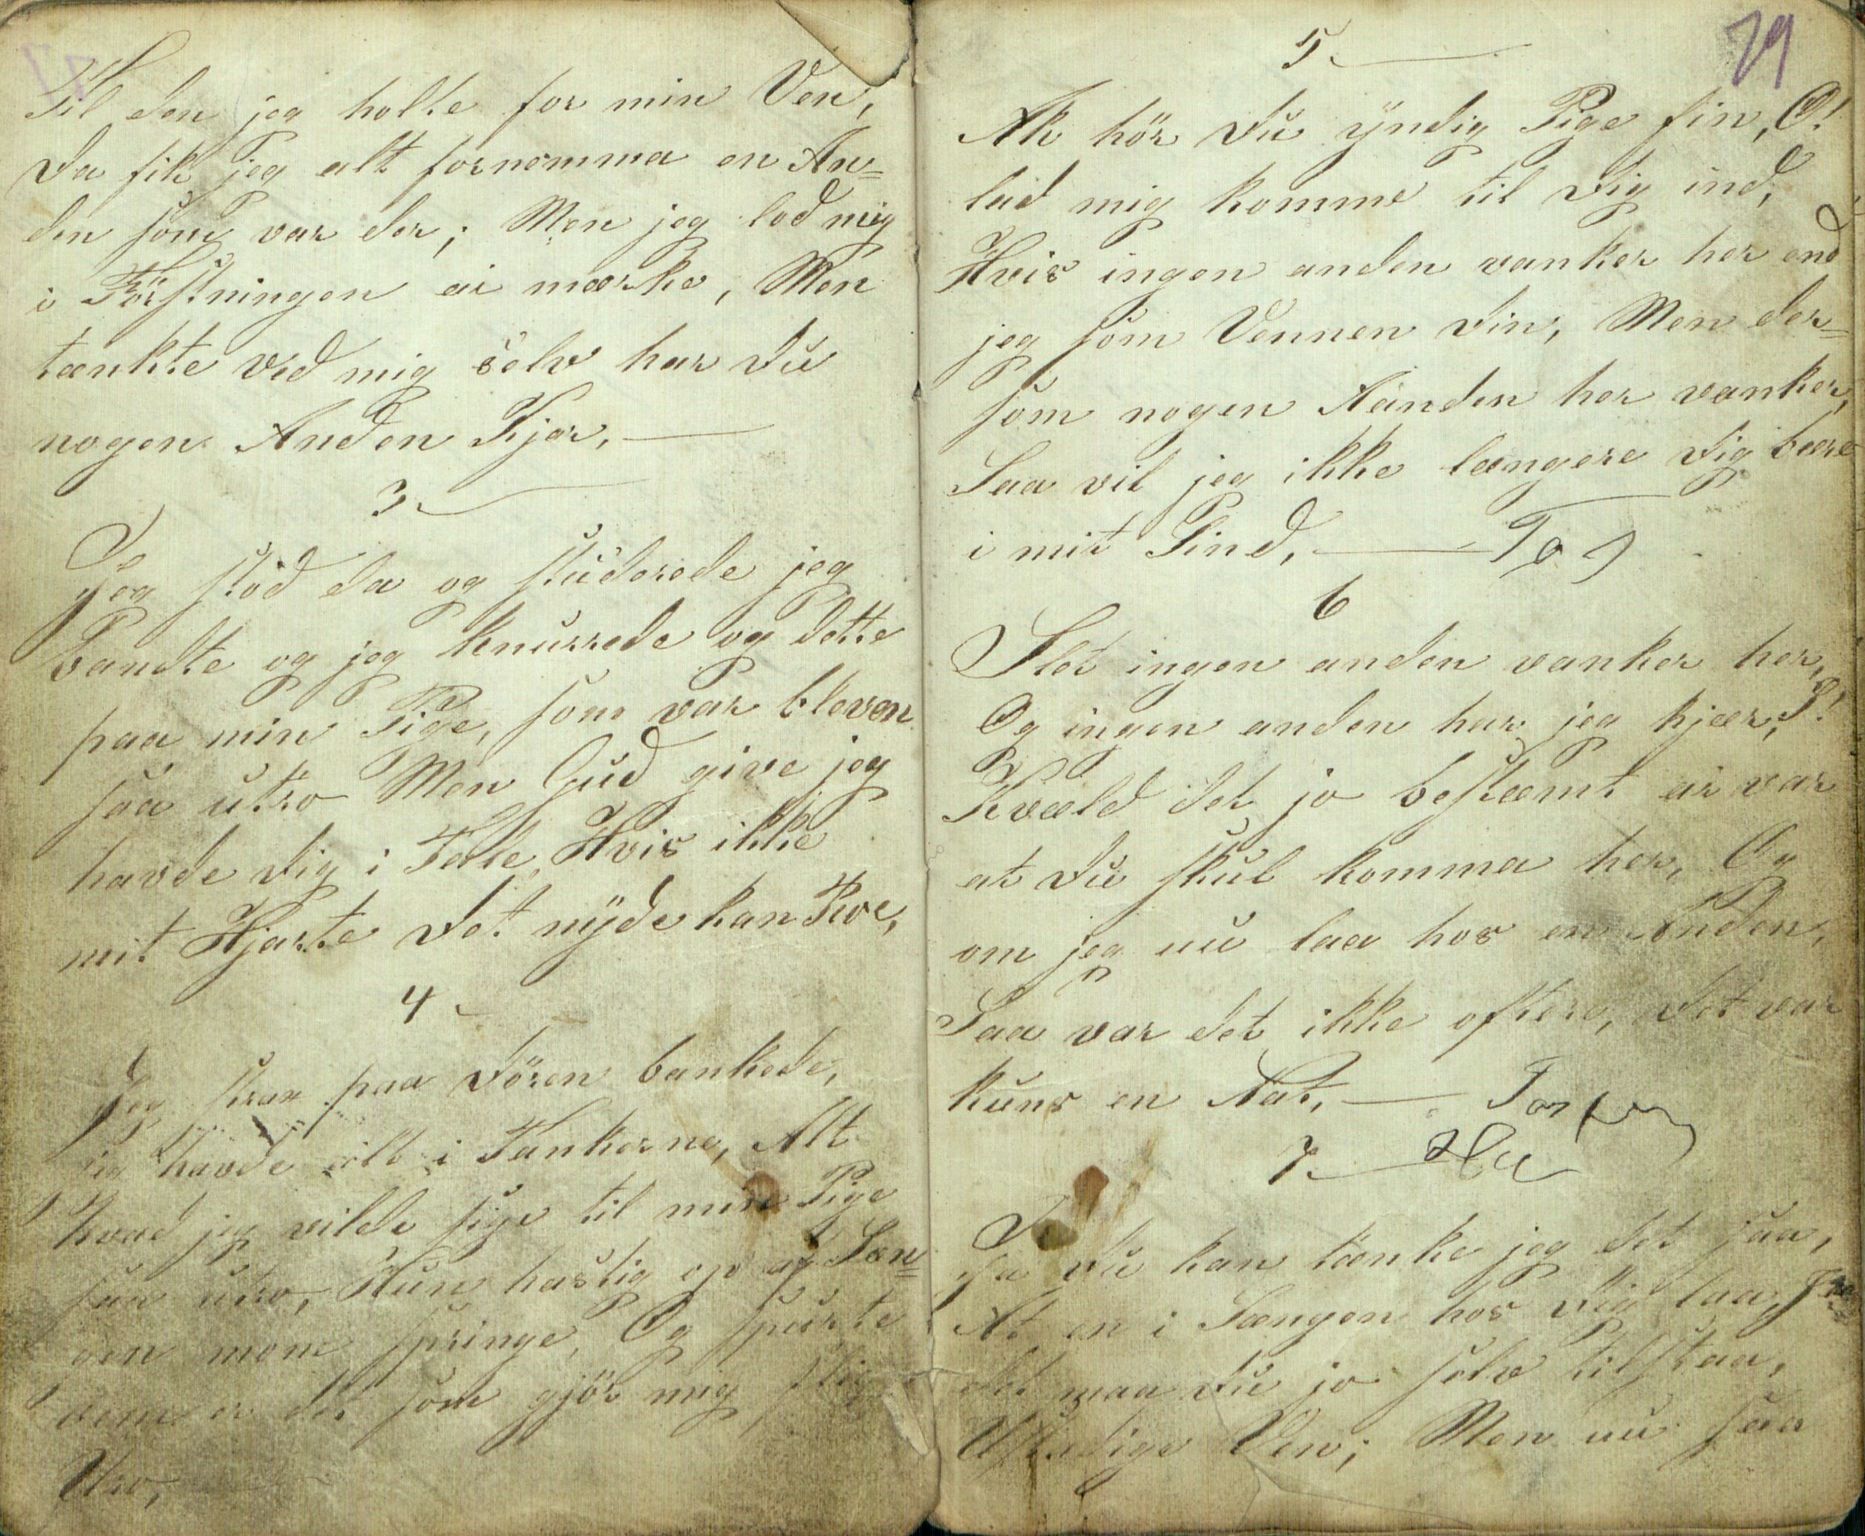 Til den jeg holte for min Ven,
Da fik jeg alt fornemma en An=
den som var der; Men jeg lod mig
i Förstningen ei mærke, Men
tænkte ved mig selv har du
nogen Anden Kjær,
3
Jeg stod da og studerede jeg
bandte og jeg knurrede og dette
paa min Pige, som var bleven
saa utro Men Gud give jeg
havde dig i Tale, Hvis ikke
mit Hjærte det nyde kan Roe,
4
Jeg strax paa Dören bankede,
jeg havde alt i Tankerne, Alt
hvad jeg vilde sige til min Pige
saa utro, Hun hastig op af Sæn=
gen mone springe, Og spurte
vem er det som gjör mig slig
Uro,
79
5
Ak hör du yndig Pige fin, O!
lad mig komme til dig ind,
Hvis ingen anden vanker her end
jeg som Vennen din, Men der=
som nogen Aanden her vanker,
Saa vil jeg ikke længere dig bære
i mit Sind,
6
Slet ingen anden vanker her,
Og ingen anden har jeg kjær, I!
Kvæld det jo bestæmt ei var
at du skul komma her, Og
om jeg nu laa hos en Anden,
Saa var det ikke oftere, det var
kuns en Nat,
7
Ja du kan tænke jeg det saa,
At en i Sængen hos dig laa,
det maa du jo selv tilstaa,
Ustadige Ven; Men nu saa